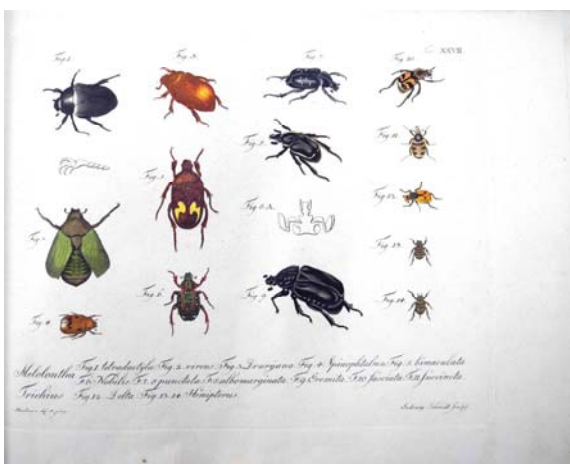 XXVII.
Fig. 1.
Fig. 3.
Fig. 7.
Fig. 10.
Fig. 11.
Fig. 5.
Fig. 8.
Fig. 12.
Fig. 8. A.
Fig. 2.
Fig. 13.
Fig. 6.
Fig. 9.
Fig. 14.
Fig. 4.
Melolontha Fig. 1. tetradactyla. Fig. 2. virens. Fig. 3. Fig. 4. Fig. 5. bimaculata
F. 6. Nobilis. F. 7. 8 punctata. F. 8. albomarginata. Fig. 9. Eremita. F. 10. fasciata. F. 11. succincta.
Trichius Fig. 12. Delta. Fig. 13. 14. Hemipterus.
Ludwig Schmidt sculps.